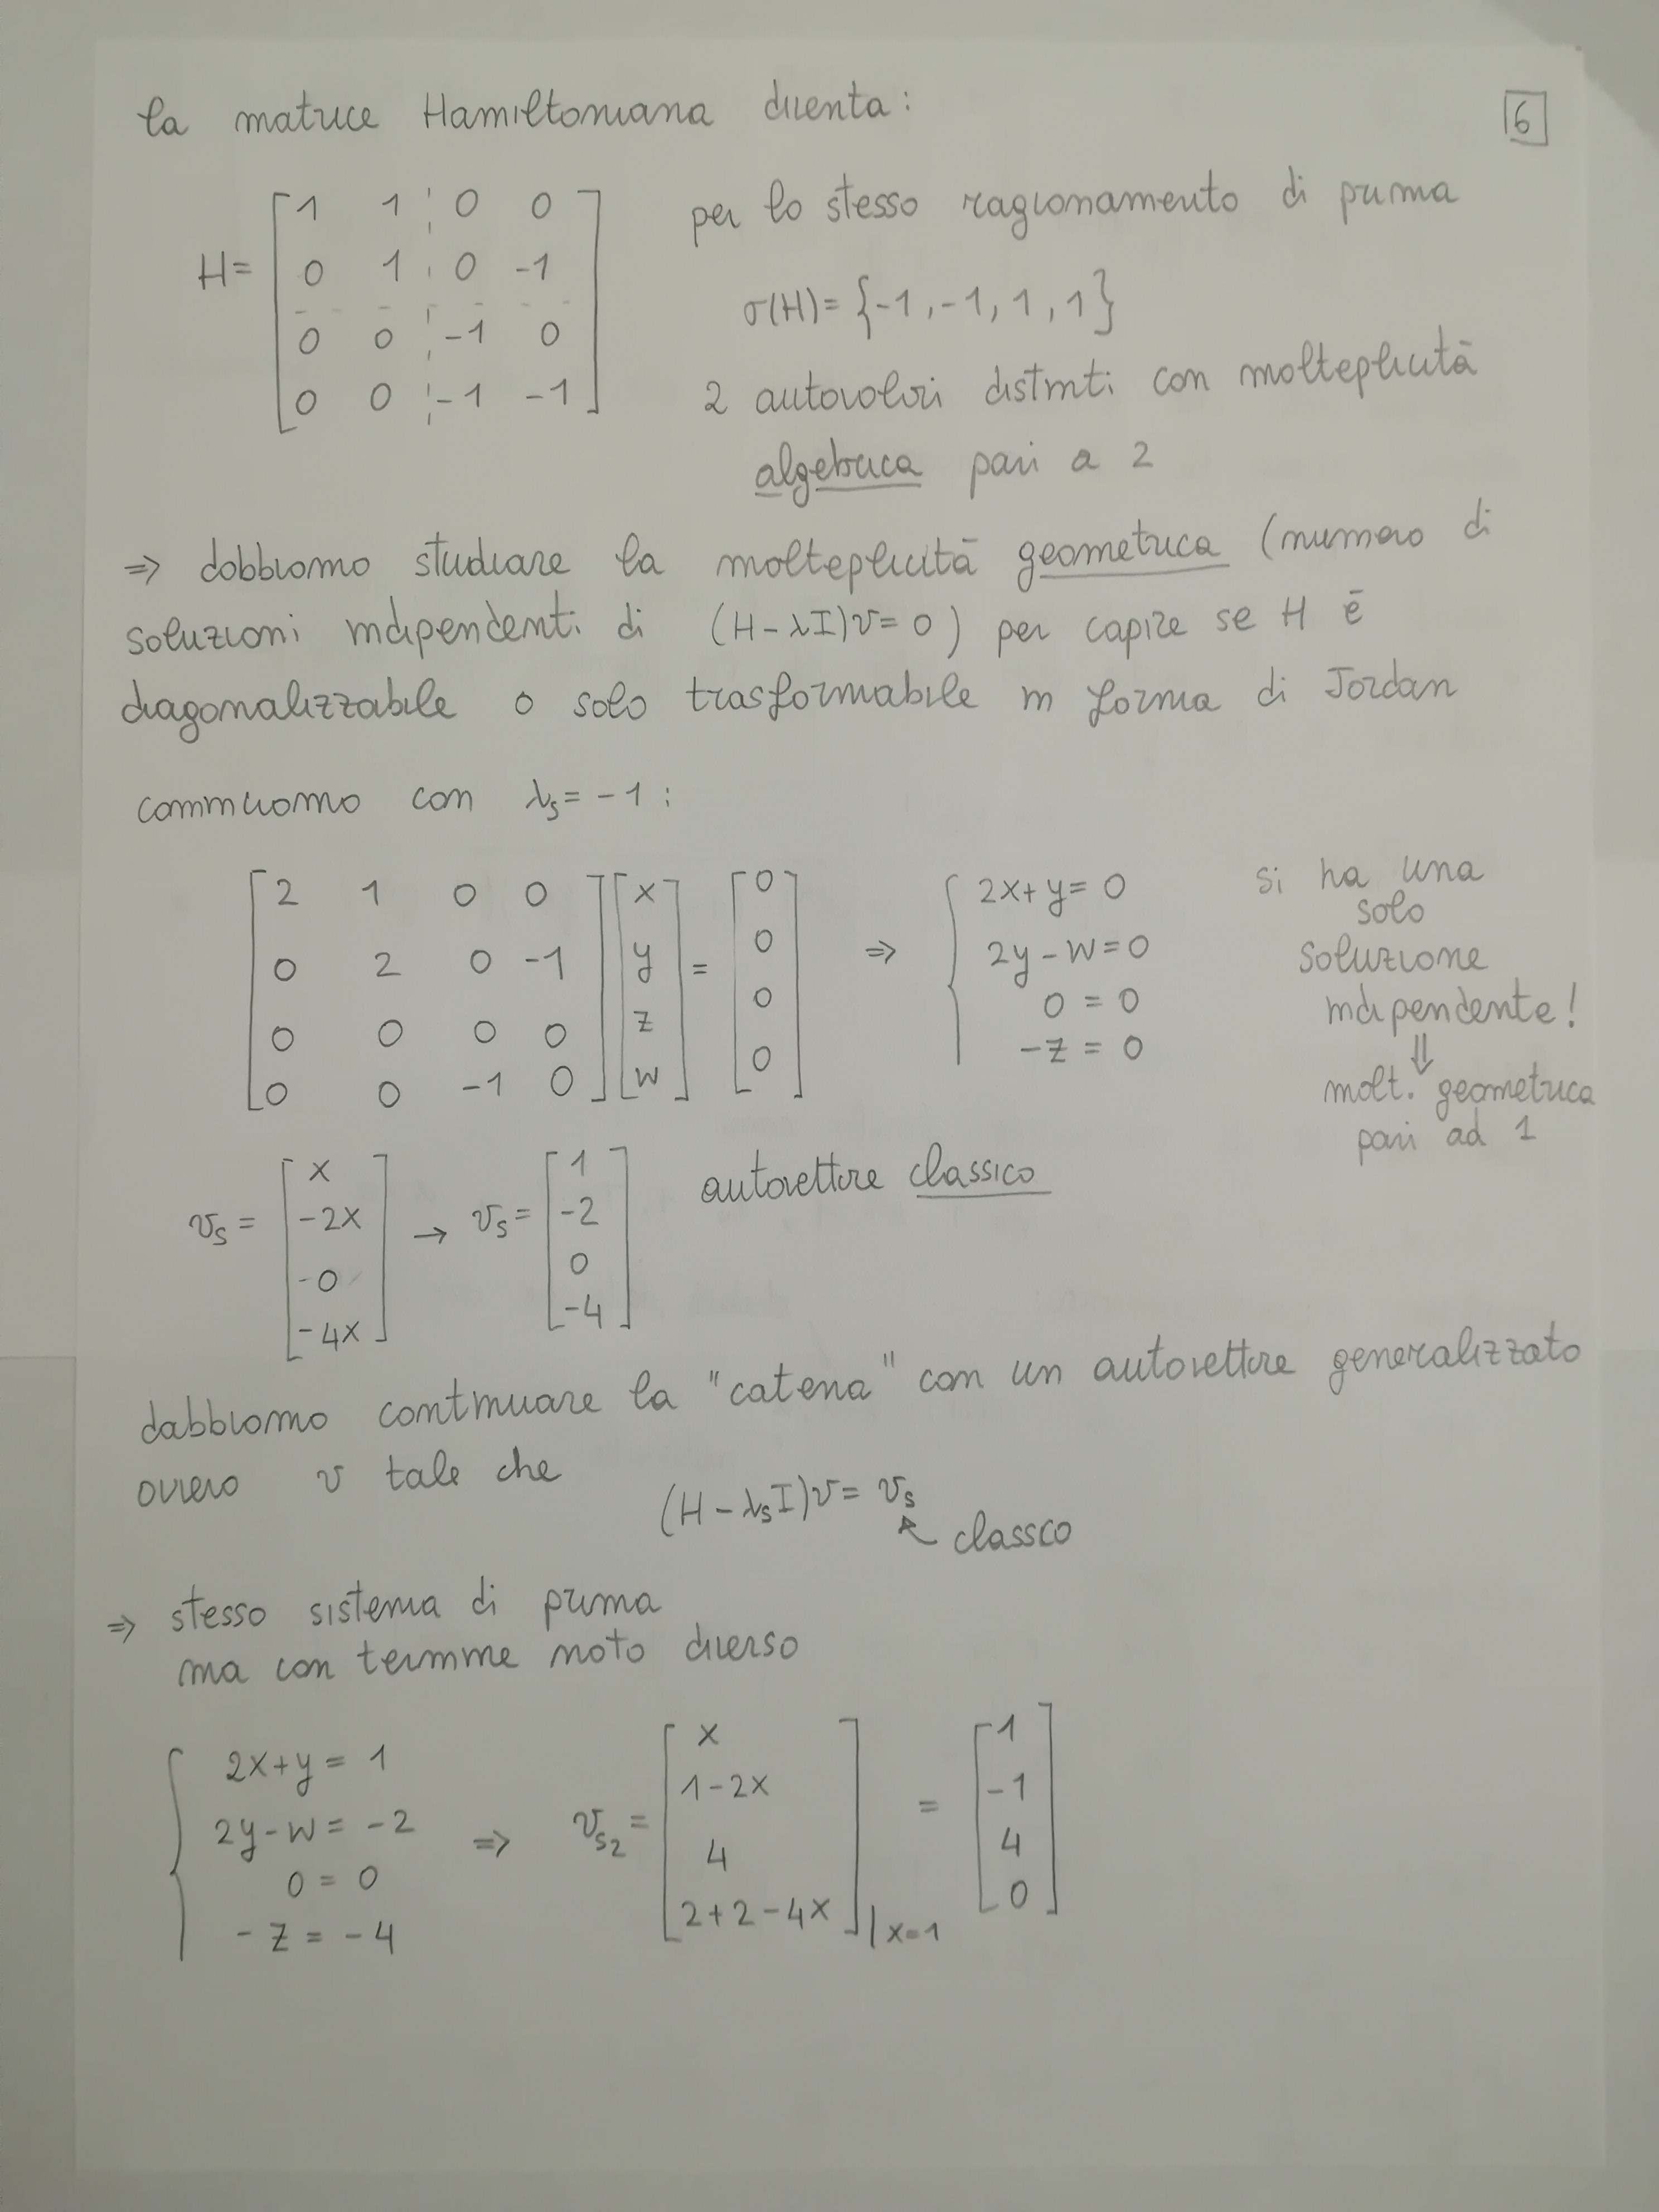 la matrice Hamiltoniana diventa:
6
H= [ 1 1 0 0
0 1 0 -1
0 0 -1 0
0 0 -1 -1 ]
per lo stesso ragionamento di prima
σ(H)= {-1, -1, 1, 1}
2 autovalori distinti con molteplicità
algebrica pari a 2
⇒ dobbiamo studiare la molteplicità geometrica (numero di
soluzioni indipendenti di (H-λI)v=0) per capire se H è
diagonalizzabile o solo trasformabile in forma di Jordan
cominciamo con λs = -1 :
[ 2 1 0 0 ] [ x ] = [ 0 ] ⇒ { 2x+y=0
[ 0 2 0 -1 ] [ y ] [ 0 ] 2y-w=0
[ 0 0 0 0 ] [ z ] [ 0 ] 0 = 0
[ 0 0 -1 0 ] [ w ] [ 0 ] -z = 0
si ha una
solo
soluzione
indipendente!
⇓
molt. geometrica
pari ad 1
vs = [ x
-2x
-0
-4x ] → vs = [ 1
-2
0
-4 ]
autovettore classico
dabbiamo continuare la "catena" con un autovettore generalizzato
ovvero v tale che
(H-λsI)v= vs
classco
⇒ stesso sistema di prima
ma con termine noto diverso
{ 2x+y = 1
2y-w = -2
0 = 0
-z = -4
⇒ vs2 = [ x
1-2x
4
2+2-4x ] |x=1 = [ 1
-1
4
0 ]